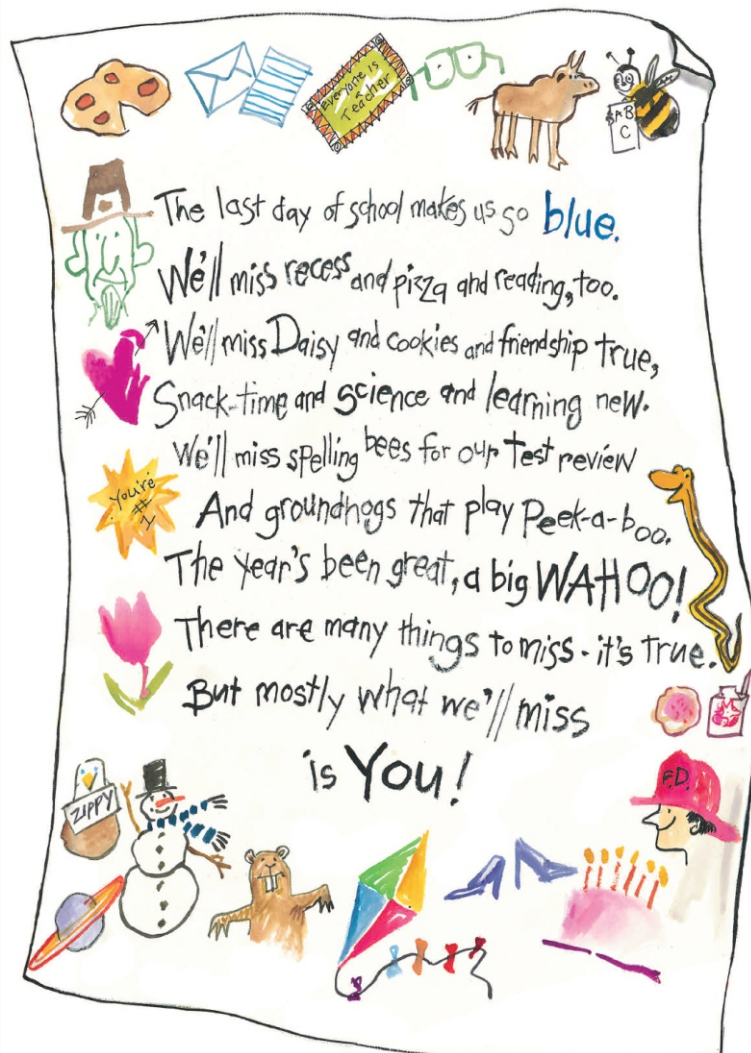 Everyone is
a
Teacher
A B
C
The last day of school makes us so blue.
We'll miss recess and pizza and reading, too.
We'll miss Daisy and cookies and friendship true,
Snack-time and science and learning new.
We'll miss spelling bees for our test review
You're
#
1
And groundhogs that play Peek-a-boo.
The year's been great, a big WAHOO!
There are many things to miss - it's true.
But mostly what we'll miss
is You!
F.D.
ZIPPY